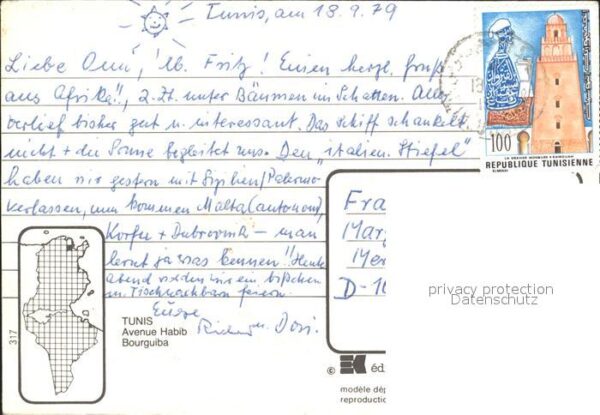 Tunis, am 18.9.79
Liebe Omi, lb. Fritz! Einen herzl. Gruß
aus Afrika!!, z.Zt. unter Bäumen im Schatten. Alles
verlief bisher gut u. interessant. Das Schiff schaukelt
nicht + die Sonne begleitet uns. Den „italien. Stiefel"
haben wir gestern mit Sizilien/Palermo
verlassen, nun kommen Malta (autonom),
Korfu + Dubrovnik – man
lernt ja was kennen!! Heute
Abend werden wir ein bißchen
m. Tischnachbarn feiern.
Eure
u. Dori.
100
LA GRANDE MOSQUEE KAIROUAN
REPUBLIQUE TUNISIENNE
Fra
Mar
D-10
privacy protection
Datenschutz
317
TUNIS
Avenue Habib
Bourguiba
© EK éd
modèle dép
reproductio